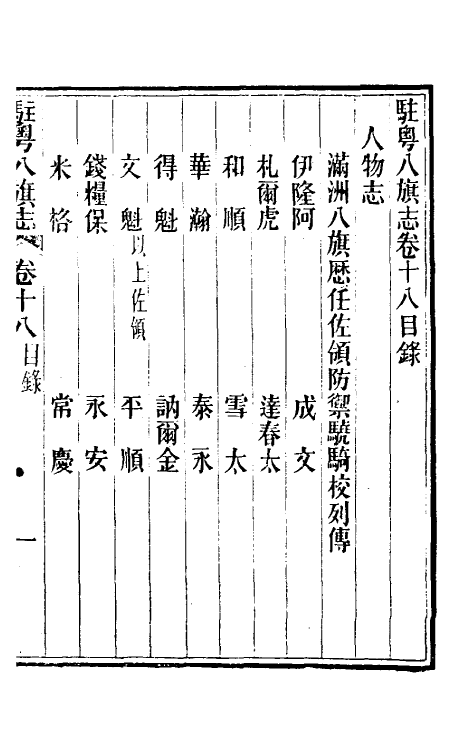 駐粤八旗志卷十八目錄
人物志
滿洲八旗歷任佐領防禦驍騎校列傳
伊隆阿　成文
札爾虎　達春太
和順　雪太
華瀚　泰永
得魁　訥爾金
文魁以上佐領　平順
錢糧保　永安
米格　常慶
駐粤八旗志　卷十八目錄　一